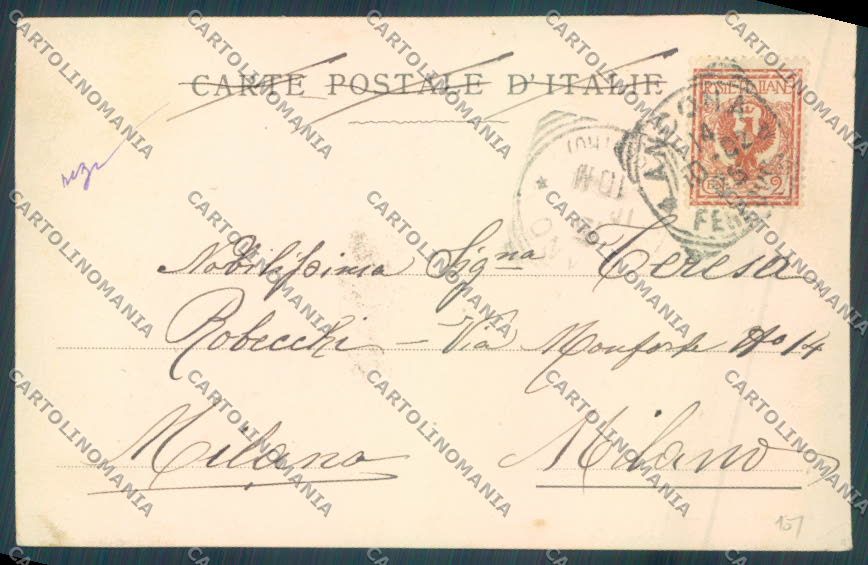 CARTE POSTALE D'ITALIE
POSTE ITALIANE
2
ANCONA
FERROVIA
Nobilissima Signa Teresa
Robecchi – Via Monforte No 14
Milano Milano
157
CARTOLINOMANIA